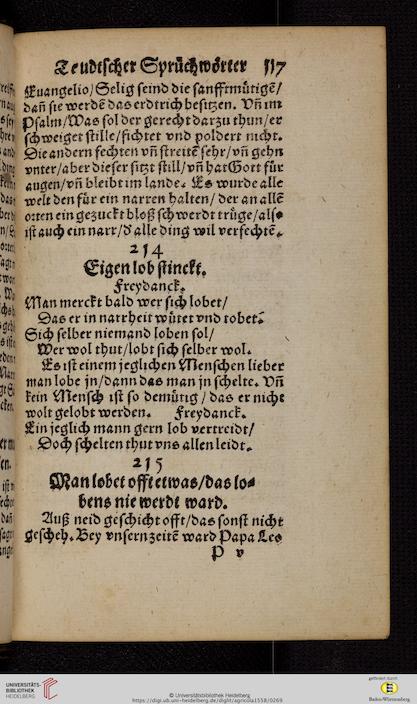 Teudtscher Sprüchwörter 117
Euangelio/Selig seind die sanfftmütigẽ/
dañ sie werdẽ das erdtrich besitzen. Vñ im
Psalm/Was sol der gerecht darzu thun/er
schweiget stille/fichtet vnd poldert nicht.
Die andern fechten vñ streitẽ sehr/vñ gehn
vnter/aber dieser sitzt still/vñ hat Gott für
augen/vñ bleibt im lande. Es wurde alle
welt den für ein narren halten/ der an allẽ
orten ein gezuckt bloß schwerdt trüge/also
ist auch ein narr/d' alle ding wil verfechtẽ.
214
Eigen lob stinckt.
Freydanck.
Man merckt bald wer sich lobet/
Das er in narrheit wütet vnd tobet.
Sich selber niemand loben sol/
Wer wol thut/lobt sich selber wol.
Es ist einem jeglichen Menschen lieber
man lobe jn/dann das man jn schelte. Vñ
kein Mensch ist so demütig/das er nicht
wolt gelobt werden. Freydanck.
Ein jeglich mann gern lob vertreidt/
Doch schelten thut vns allen leidt.
215
Man lobet offt etwas/das lo=
bens nie werdt ward.
Auß neid geschicht offt/das sonst nicht
gescheh. Bey vnsern zeitẽ ward Papa Leo
P v
UNIVERSITÄTS-
BIBLIOTHEK
HEIDELBERG
© Universitätsbibliothek Heidelberg
https://digi.ub.uni-heidelberg.de/diglit/agricola1558/0269
gefördert durch
Baden-Württemberg